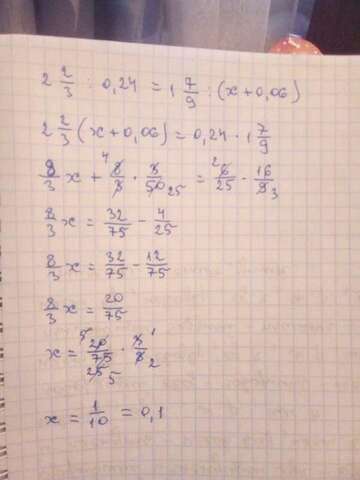 2 2/3 : 0,24 = 1 7/9 : (x + 0,06)
2 2/3 (x + 0,06) = 0,24 · 1 7/9
8/3 x + 4 8/3 · 3/50 25 = 2 6/25 · 16/9 3
8/3 x = 32/75 - 4/25
8/3 x = 32/75 - 12/75
8/3 x = 20/75
x = 5 20/75 25 5 · 3/8 1 2
x = 1/10 = 0,1